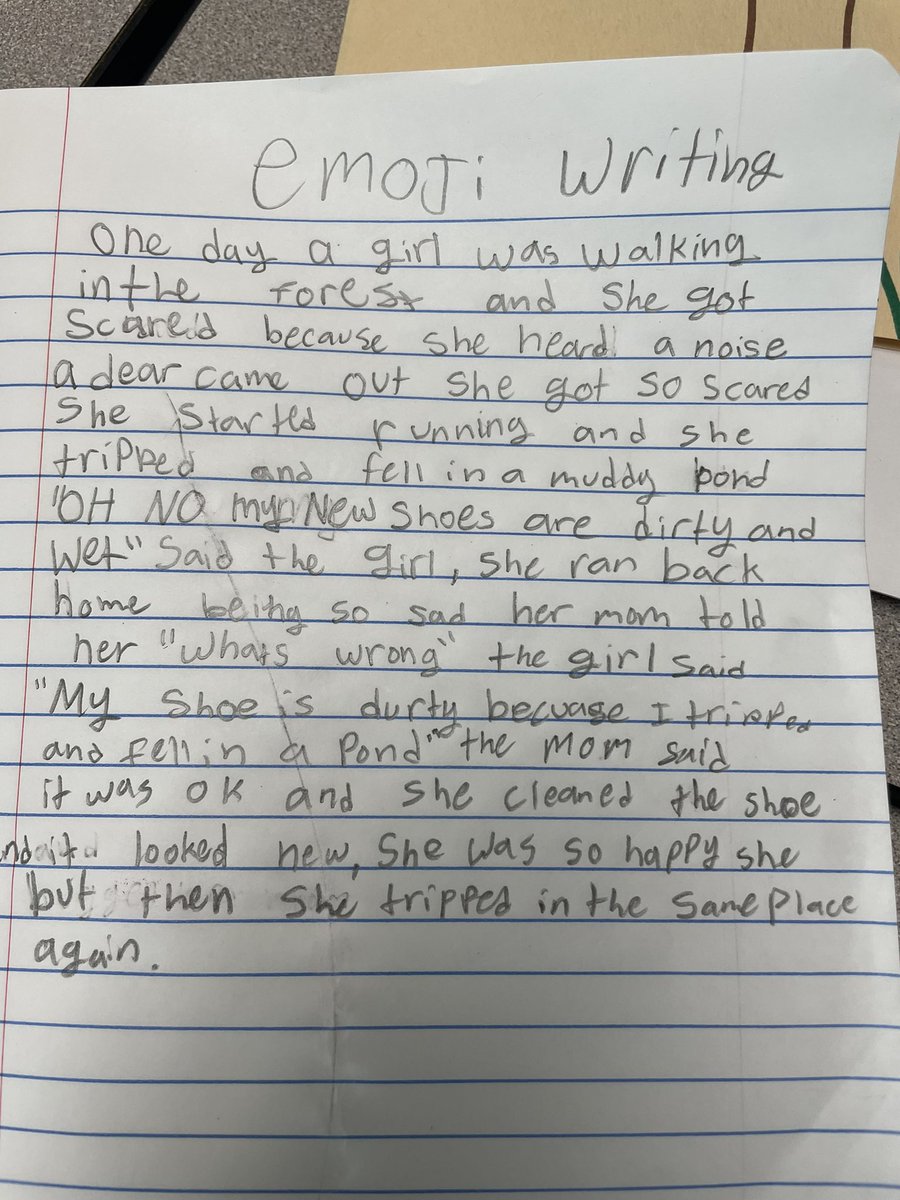 emoji writing
One day a girl was walking
in the forest and she got
scared because she heard a noise
a dear came out she got so scared
she started running and she
tripped and fell in a muddy pond
"OH NO my New shoes are dirty and
wet" said the girl, she ran back
home being so sad her mom told
her "whats wrong" the girl said
"My shoe is durty becuase I tripped
and fell in a pond" the mom said
it was ok and she cleaned the shoe
it looked new, she was so happy she
but then she tripped in the same place
again.